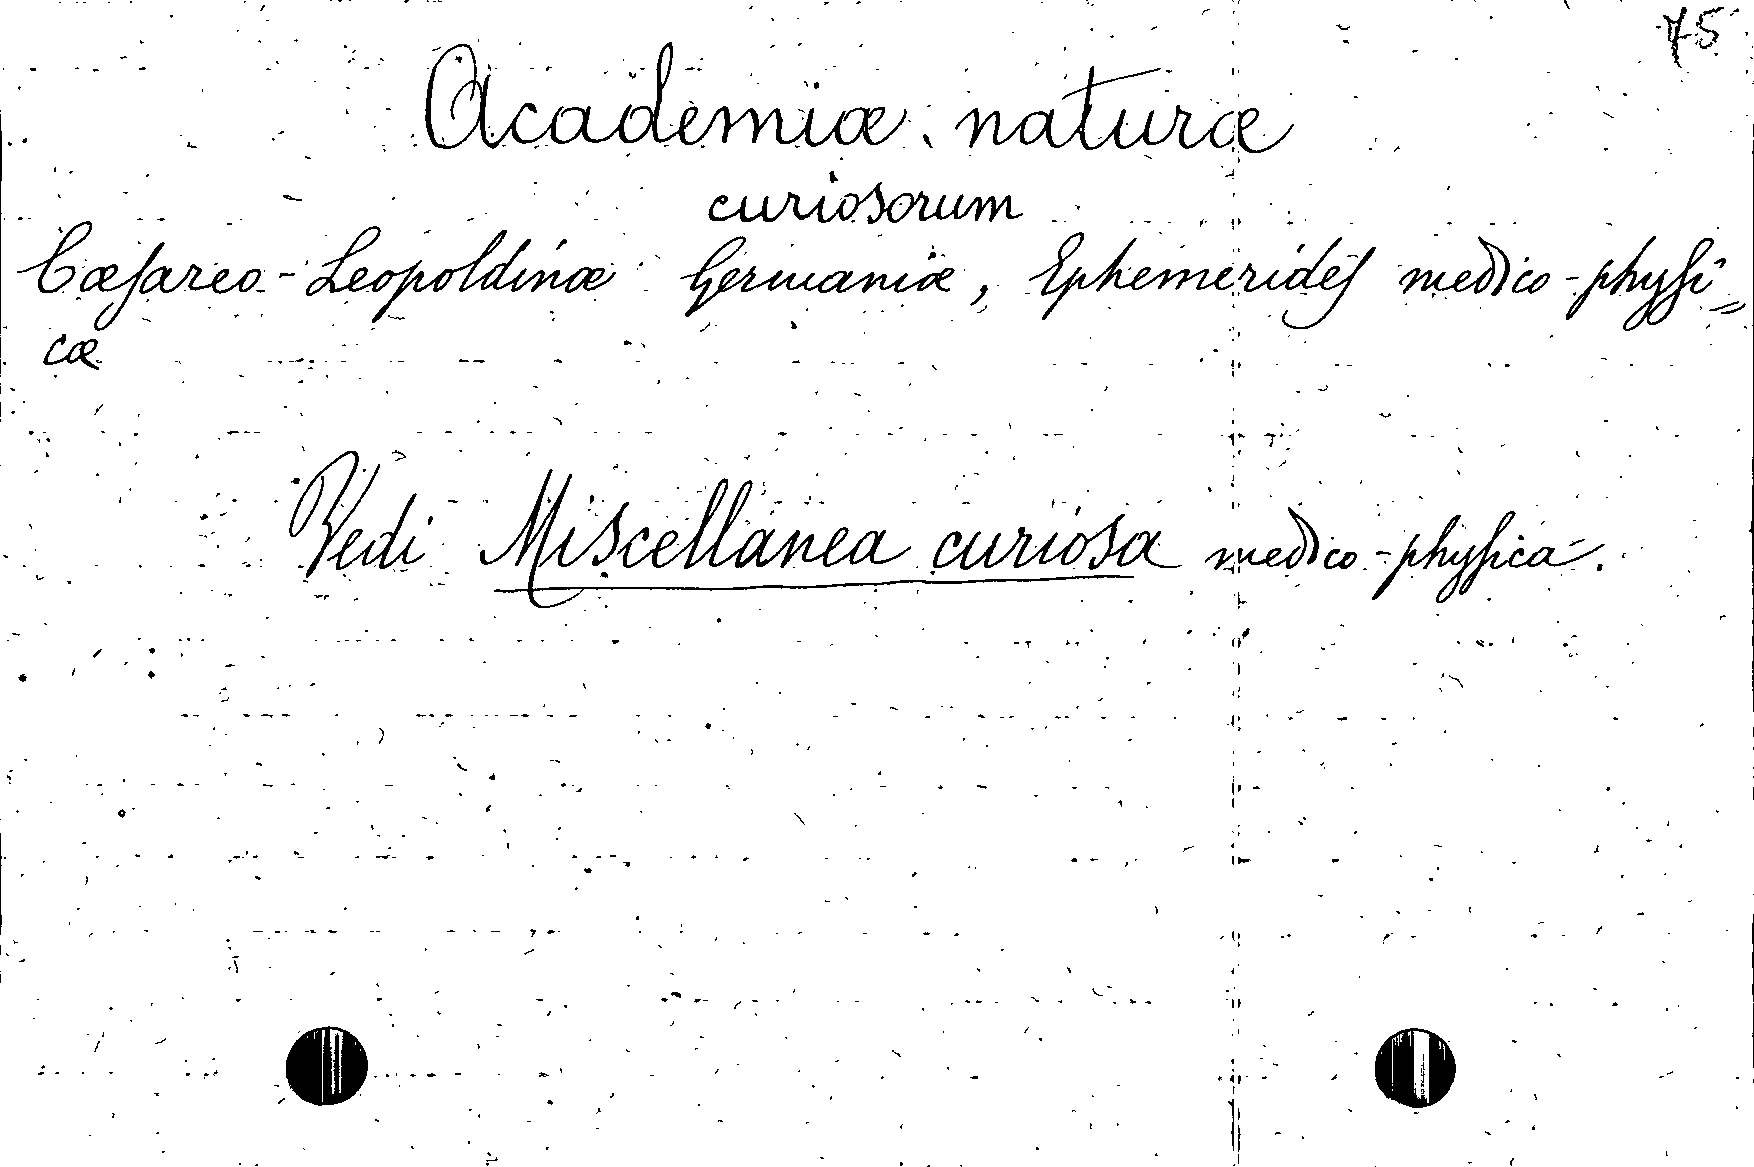 75
Academiæ naturæ
curiosorum
Cæsareo-Leopoldinæ Germaniæ, Ephemerides medico-physi=
cæ
Vedi Miscellanea curiosa medico-physica.